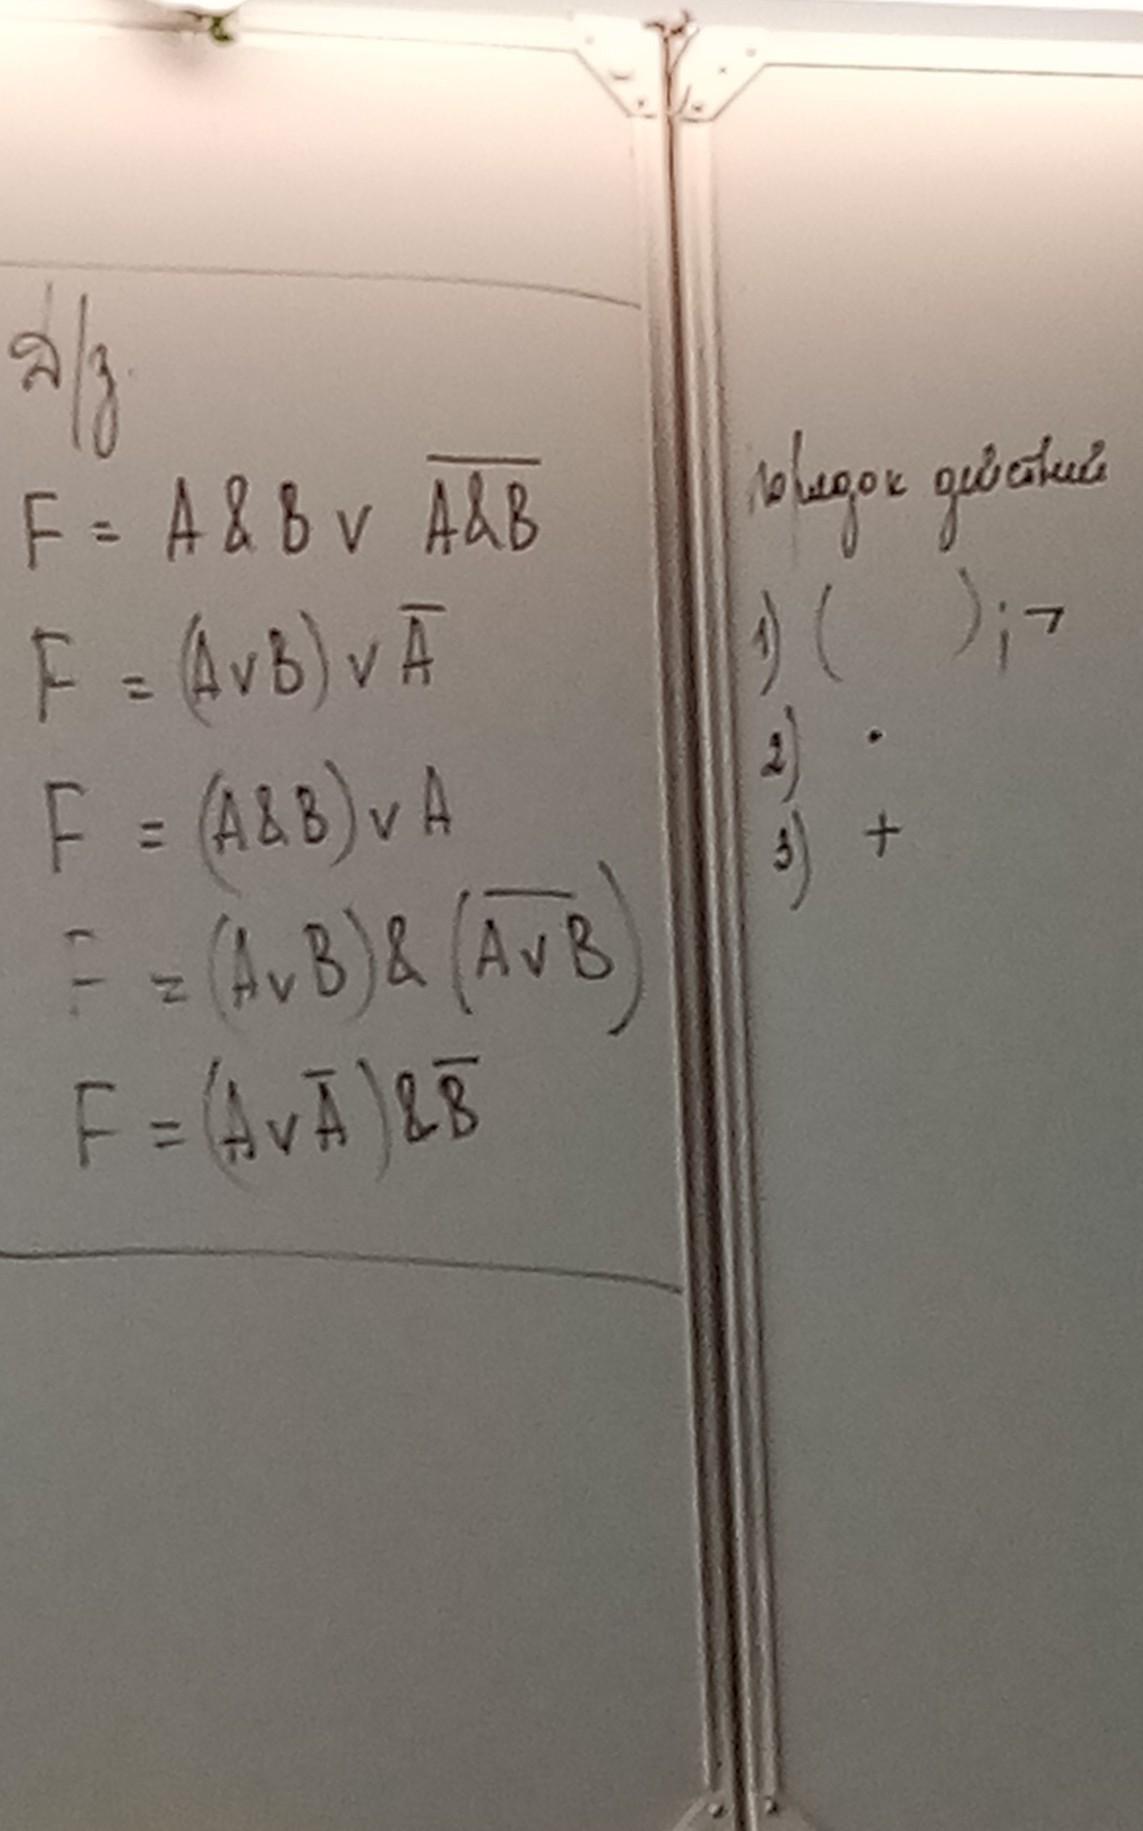 д/з.
F = A & B v \overline{A&B}
F = (A v B) v \overline{A}
F = (A & B) v A
F = (A v B) & (\overline{A v B})
F = (A v \overline{A}) & \overline{B}
порядок действий
1) ( ) ; ¬
2) ·
3) +